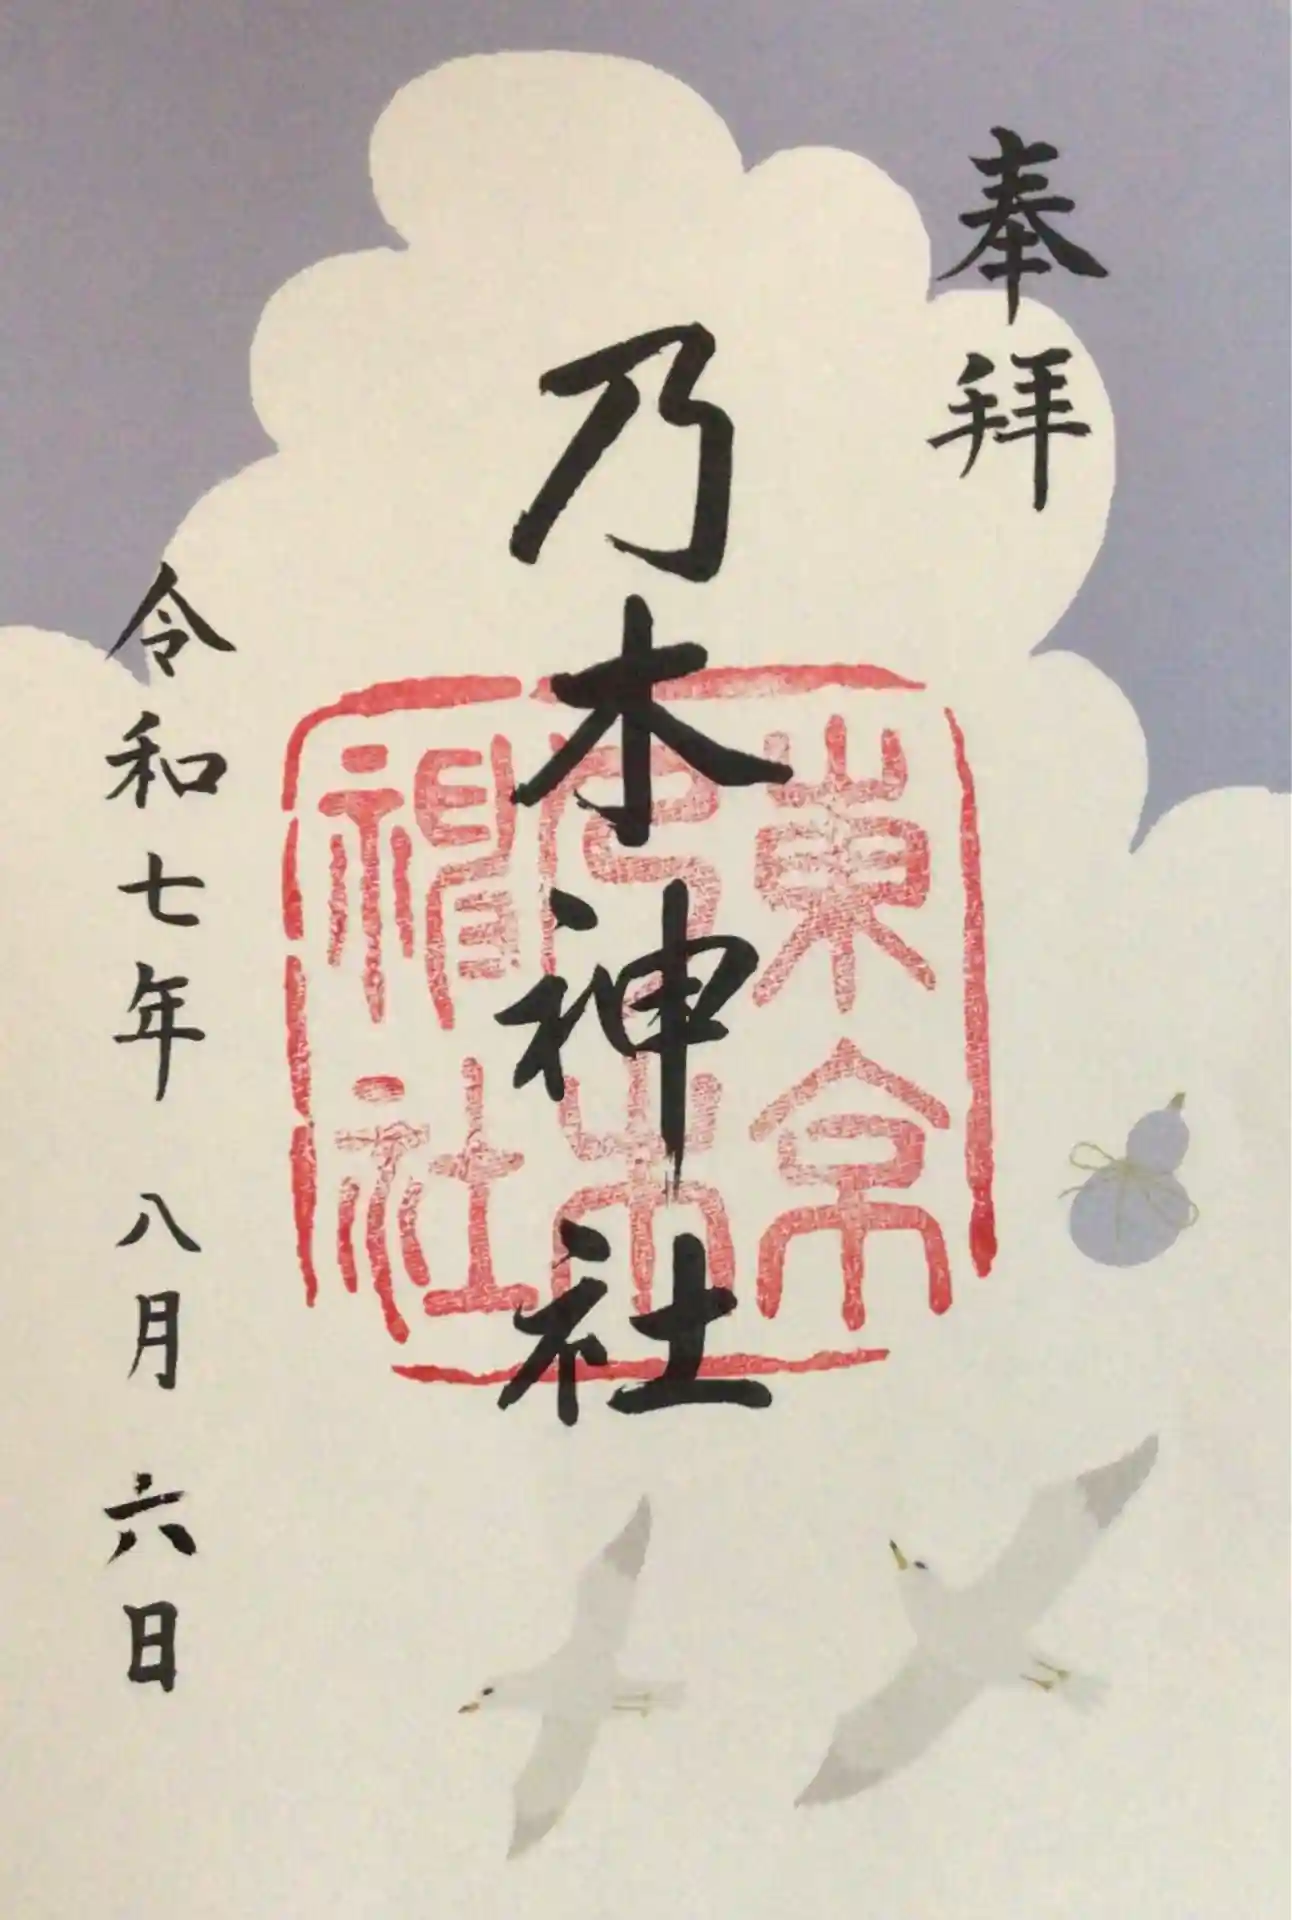 奉拝
乃木神社
東京
乃木
神社
令和七年 八月 六日